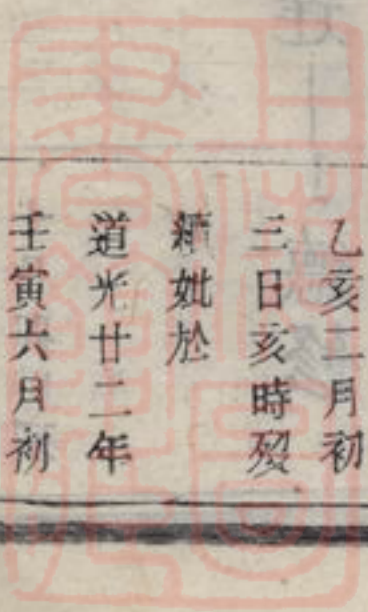 乙亥二月初
三日亥時歿
續妣於
道光廿二年
壬寅六月初